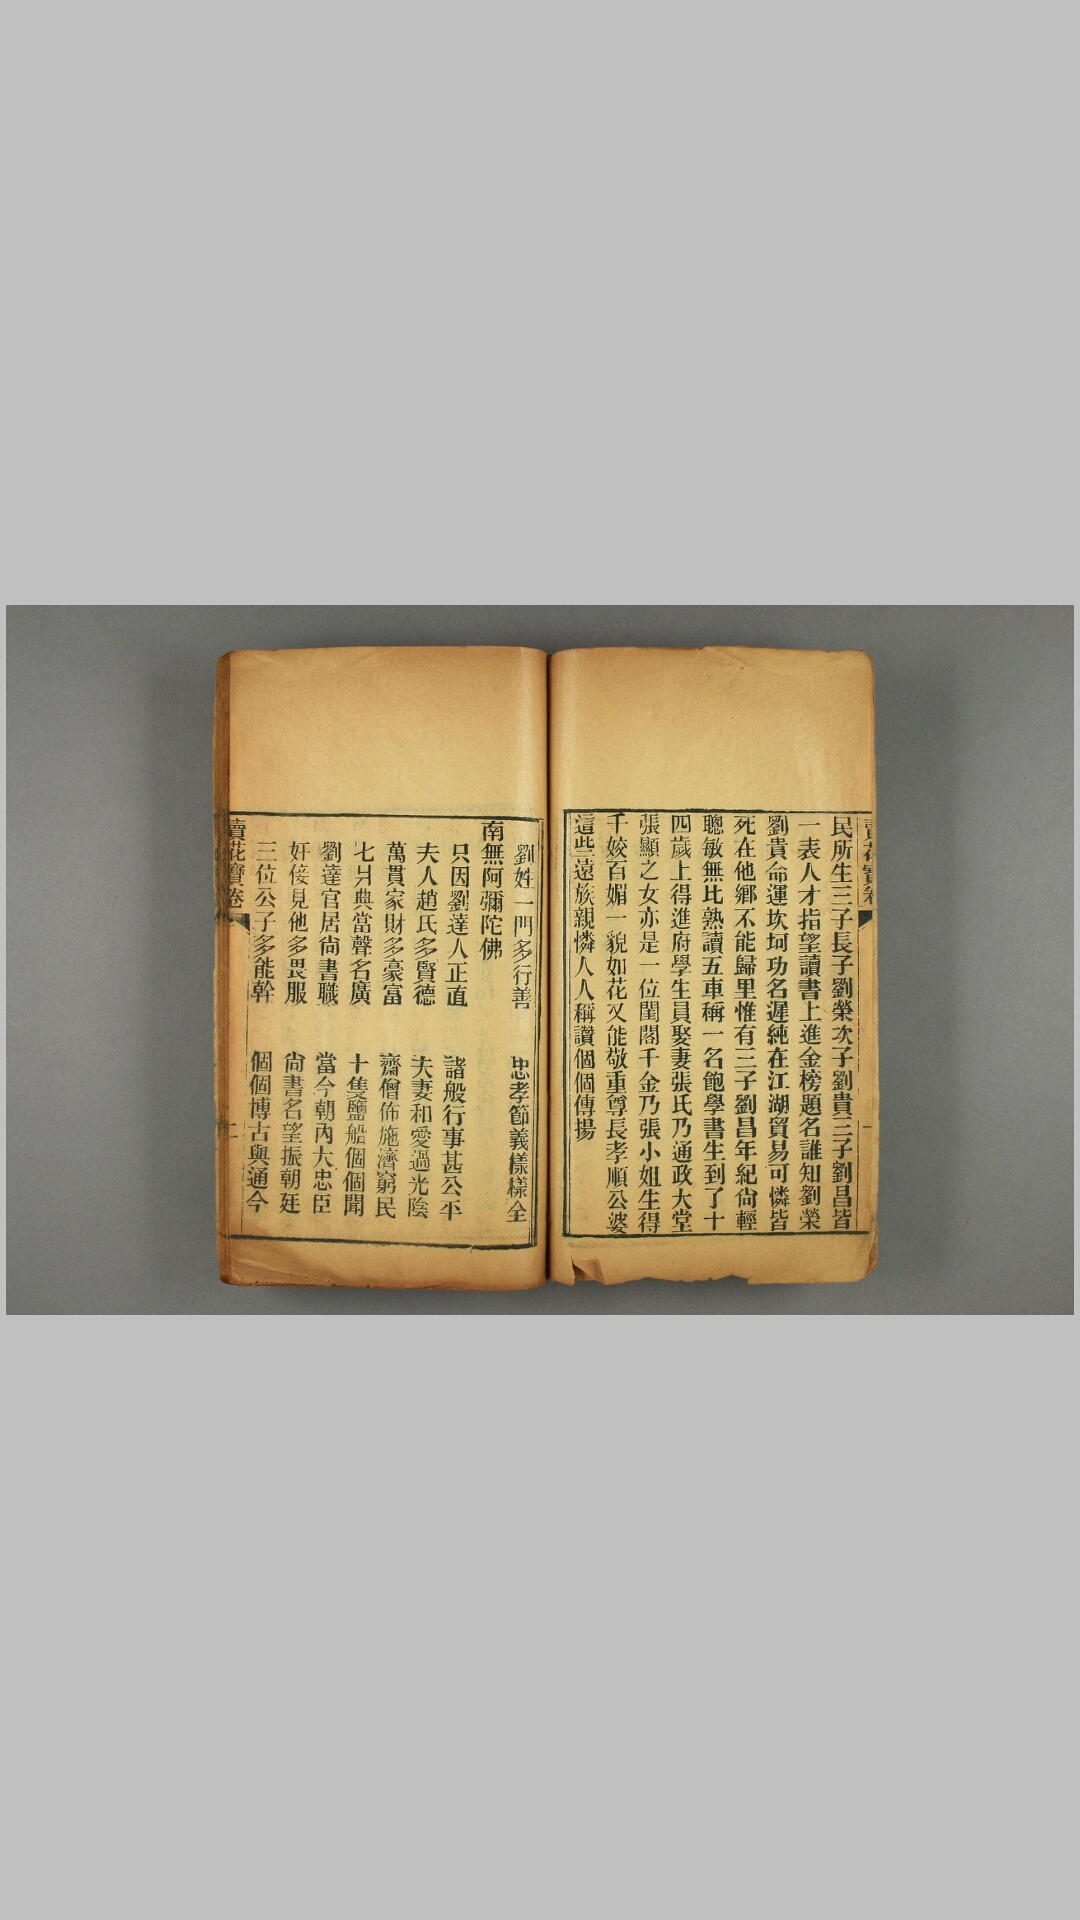 賣花寶卷
民所生三子長子劉榮次子劉貴三子劉昌皆
一表人才指望讀書上進金榜題名誰知劉榮
劉貴命運坎坷功名遲純在江湖貿易可憐皆
死在他鄉不能歸里惟有三子劉昌年紀尙輕
聰敏無比熟讀五車稱一名飽學書生到了十
四歲上得進府學生員娶妻張氏乃通政大堂
張顯之女亦是一位閨閣千金乃張小姐生得
千姣百媚一貌如花又能敬重尊長孝順公婆
這些遠族親憐人人稱讚個個傳揚
劉姓一門多行善 忠孝節義樣樣全
南無阿彌陀佛
只因劉達人正直 諸般行事甚公平
夫人趙氏多賢德 夫妻和愛過光陰
萬貫家財多豪富 齋僧佈施濟窮民
七爿典當聲名廣 十隻鹽船個個聞
劉達官居尙書職 當今朝內大忠臣
奸佞見他多畏服 尙書名望振朝廷
三位公子多能幹 個個博古與通今
賣花寶卷 二